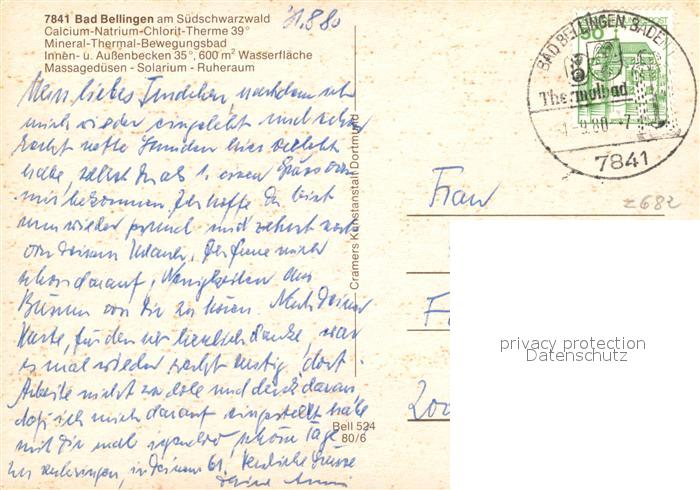 7841 Bad Bellingen am Südschwarzwald
Calcium-Natrium-Chlorit-Therme 39°
Mineral-Thermal-Bewegungsbad
Innen- u. Außenbecken 35°, 600 m² Wasserfläche
Massagedüsen - Solarium - Ruheraum
31.8.80
Mein liebes
mich wieder eingelebt und schon
recht nette Stunden hier verlebt
habe, sollst Du als 1. einen Gruss von
mir bekommen. Ich hoffe Du bist
nun wieder gesund und zehrst noch
von Deinem Urlaub. Ich freue mich
schon darauf, Neuigkeiten aus
Büsum von Dir zu hören. Nach Deiner
Karte, für den wir herzlich danke, war
es mal wieder recht lustig dort.
Arbeite nicht zu dolle und denk daran,
daß ich mich darauf eingestellt habe
mit Dir mal irgendwo schöne Tage
zu verbringen, in Deinem 61. Herzliche Grüsse
Deine
Cramers Kunstanstalt Dortmund
Bell 524
80/6
BAD BELLINGEN, BADEN
Thermalbad
-1.-9.80--7
7841
Frau
z682
F
200
privacy protection
Datenschutz